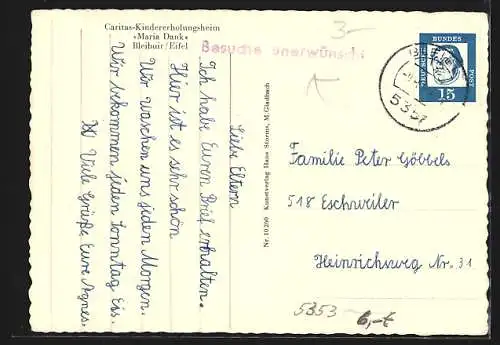 Caritas-Kindererholungsheim
»Maria Dank«
Bleibuir/Eifel
Besuche unerwünscht
3-
Liebe Eltern
Ich habe Euren Brief erhalten.
Hier ist es sehr schön
Wir waschen uns jeden Morgen.
Wir bekommen jeden Sonntag Eis.
Viele Grüße Eure Agnes.
Nr. 10 290 Kunstverlag Hans Storms, M. Gladbach
DEUTSCHE
BUNDES
POST
15
5351
Familie Peter Göbbels
518 Eschweiler
Heinrichsweg Nr. 31
5353
6,-